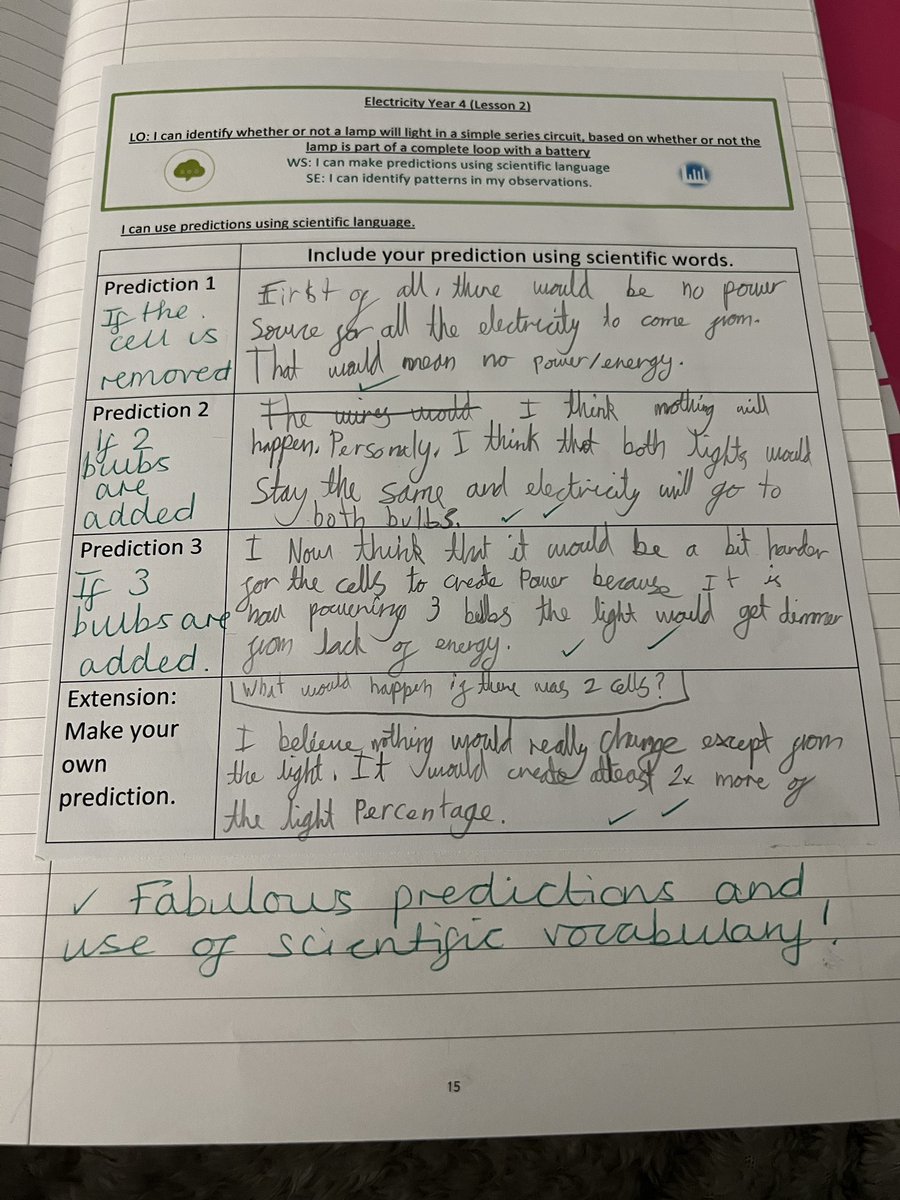 Electricity Year 4 (Lesson 2)
LO: I can identify whether or not a lamp will light in a simple series circuit, based on whether or not the
lamp is part of a complete loop with a battery
WS: I can make predictions using scientific language
SE: I can identify patterns in my observations.
I can use predictions using scientific language.
Include your prediction using scientific words.
Prediction 1
If the
cell is
removed
First of all, there would be no power
Source for all the electricity to come from.
That would mean no power/energy.
Prediction 2
If 2
bulbs
are
added
The wires would I think nothing will
happen. Personaly, I think that both lights would
Stay the same and electricity will go to
both bulbs.
Prediction 3
If 3
bulbs are
added.
I Now think that it would be a bit harder
for the cells to create Power because It is
now powering 3 bulbs the light would get dimmer
from lack of energy.
Extension:
Make your
own
prediction.
What would happen if there was 2 cells?
I believe nothing would really change except from
the light. It would create atleast 2x more of
the light Percentage.
Fabulous predictions and
use of scientific vocabulary!
15